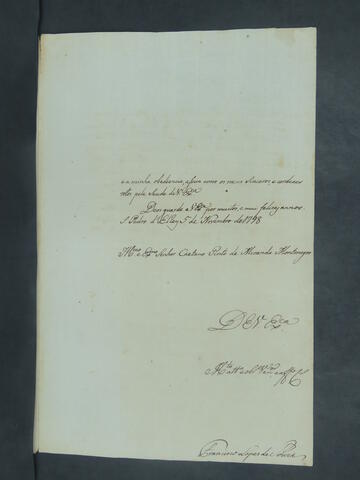 e a minha obediencia, assim como os meus sinceros, e cordeaes
votos pela Saude de V. Exa.
Deos guarde a V. Exa. por muitos, e mui felizes annos.
S. Pedro d'ElRey 5 de Novembro de 1798
Illmo. e Exmo. Senhor Caetano Pinto de Miranda Montenegro
De V. Exa.
Francisco Lopes de